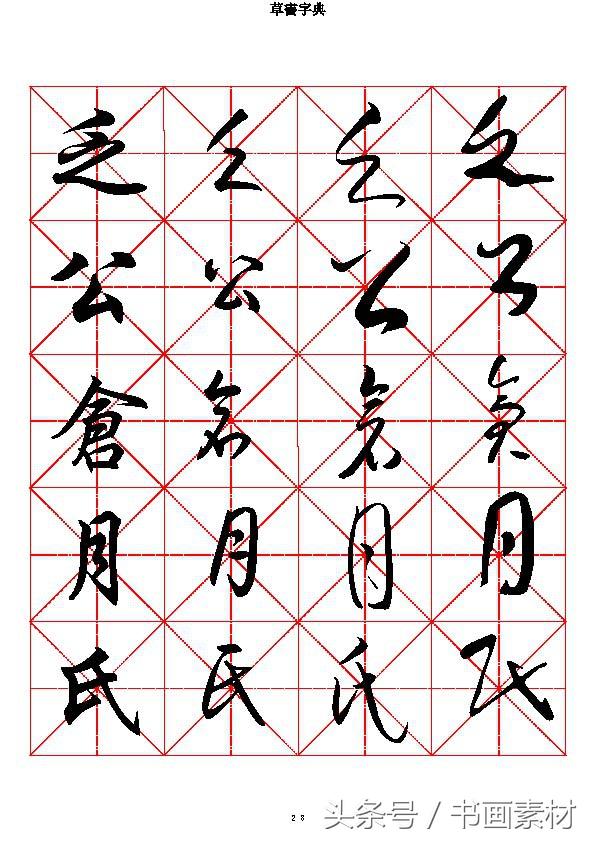 草書字典
乏乏乏乏
公公公公
倉倉倉倉
月月月月
氏氏氏氏
头条号 / 书画素材